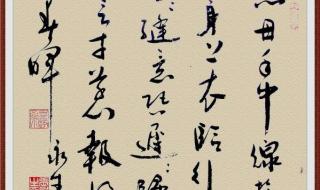 慈母手中線遊
身上衣臨行
縫意恐遲遲歸
言寸草心報得
春暉